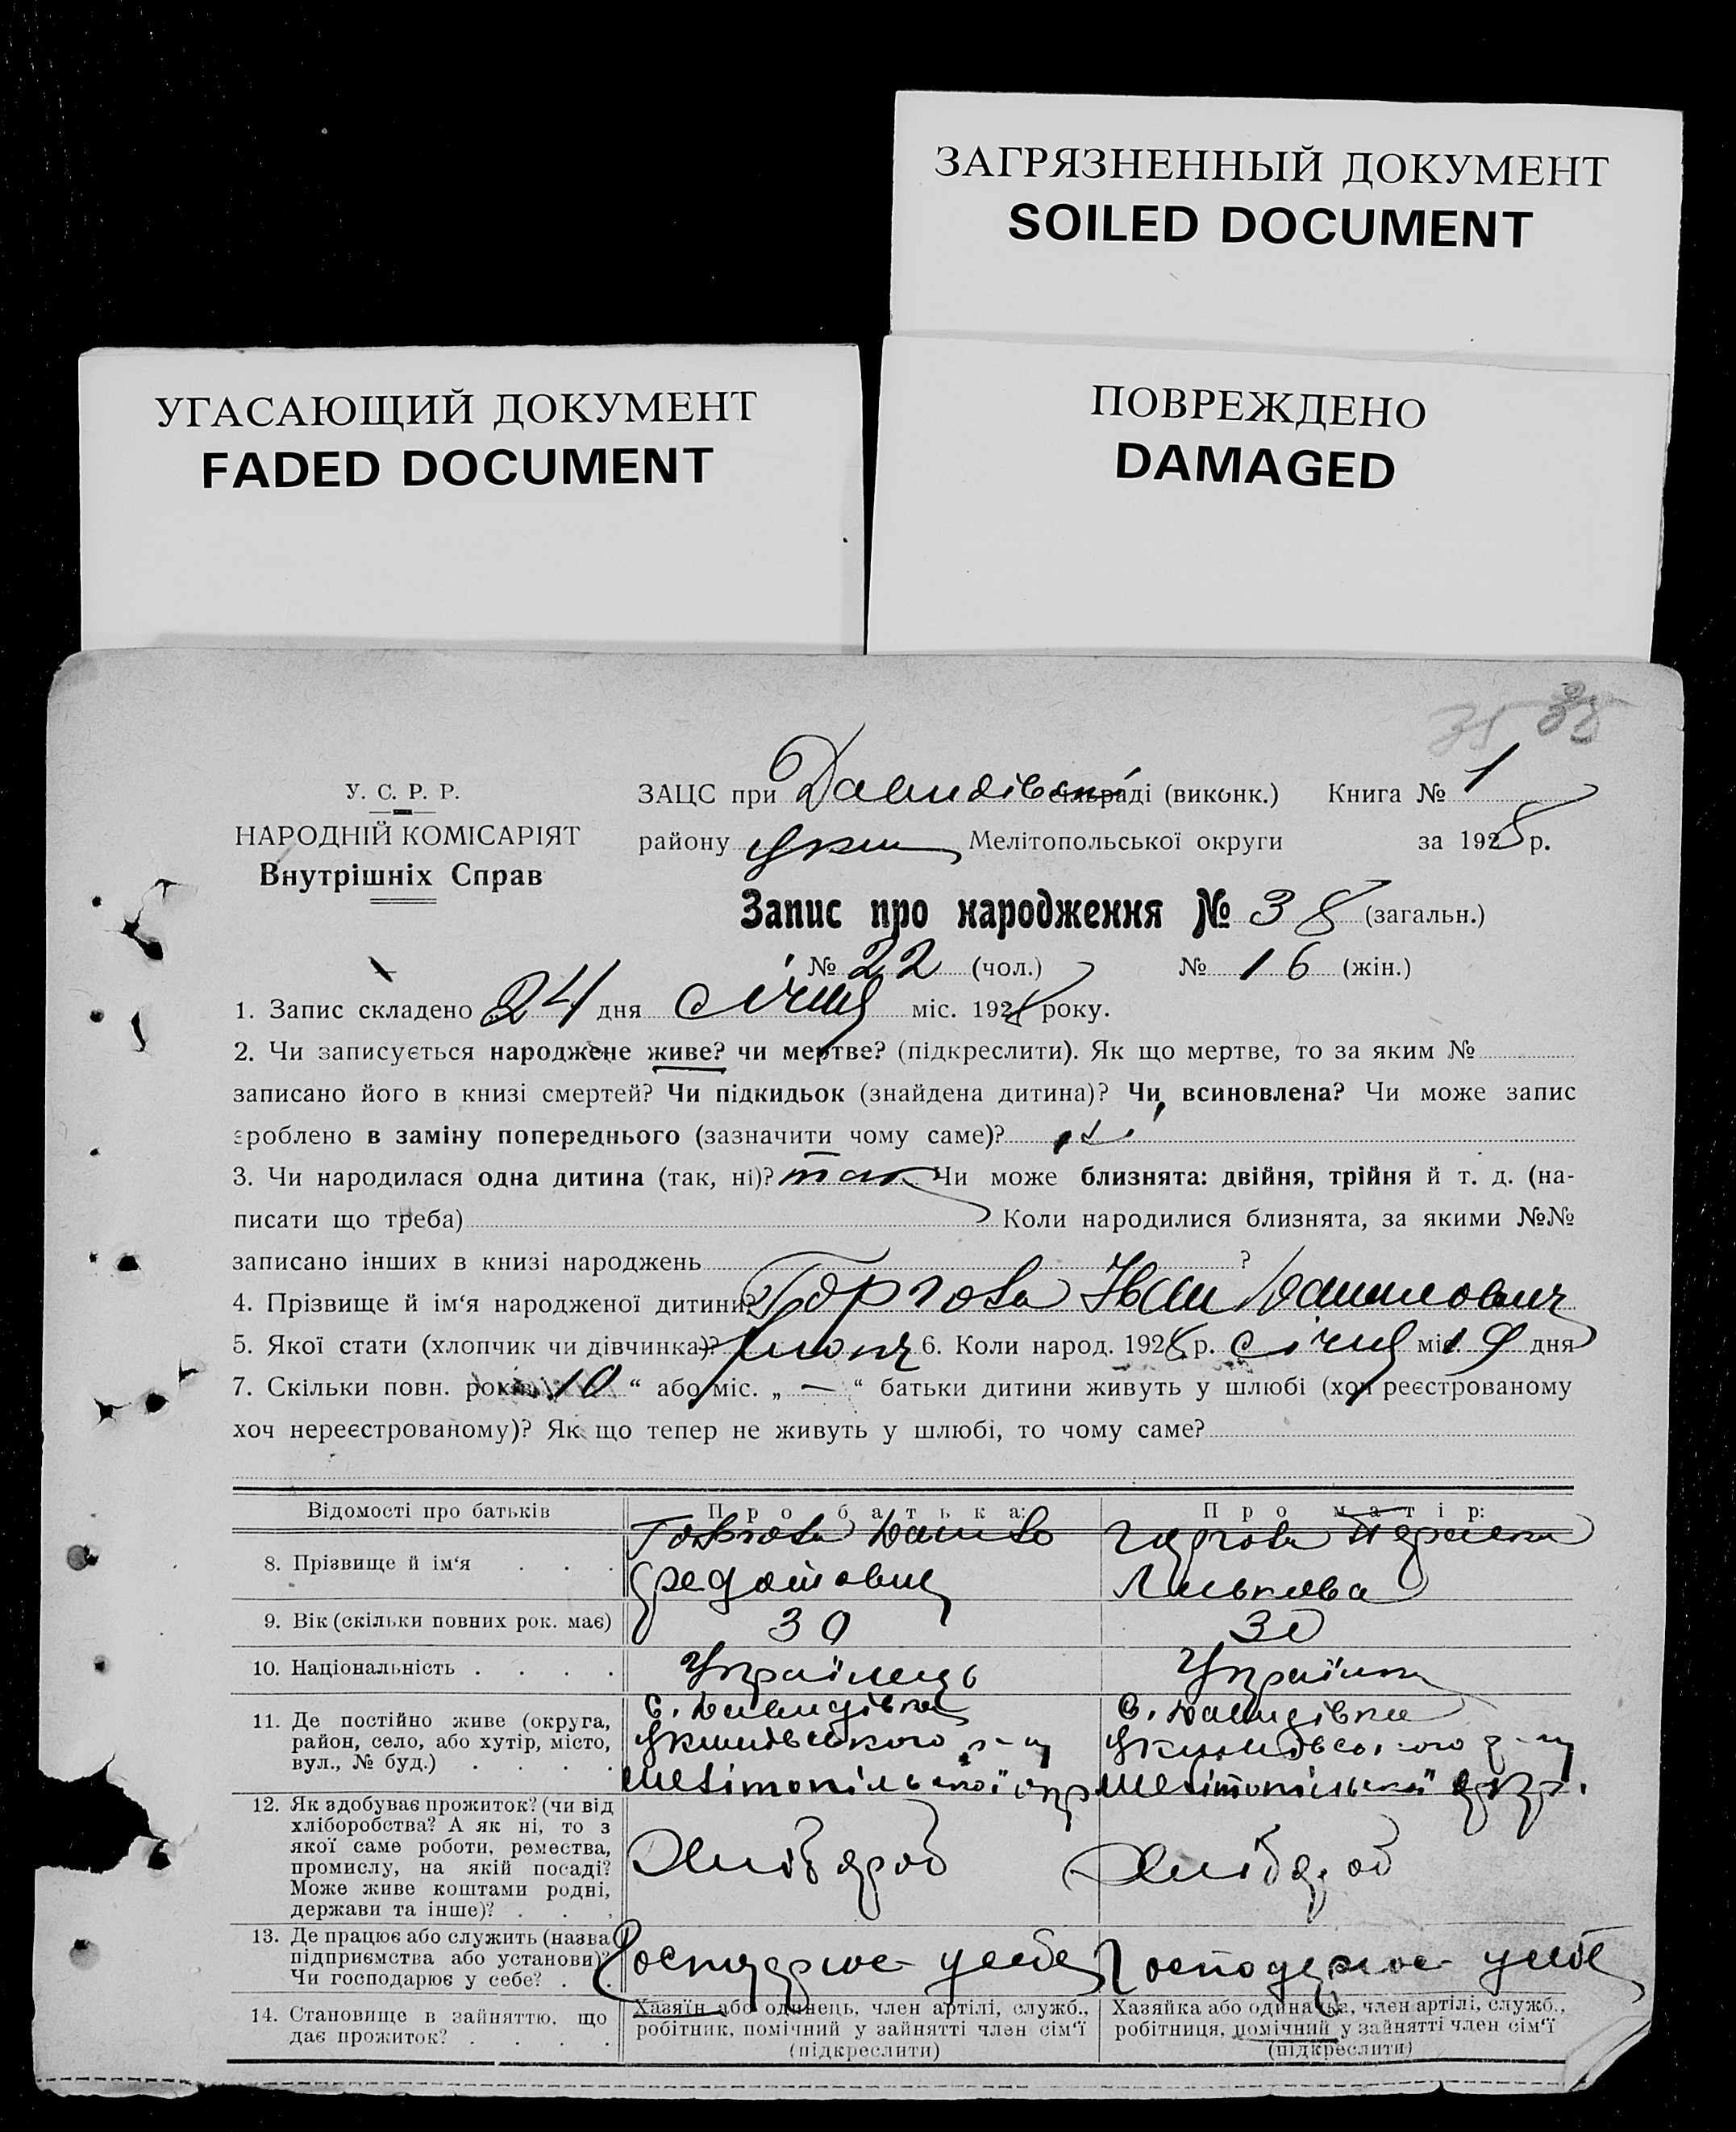 ЗАГРЯЗНЕННЫЙ ДОКУМЕНТ
SOILED DOCUMENT
УГАСАЮЩИЙ ДОКУМЕНТ
FADED DOCUMENT
ПОВРЕЖДЕНО
DAMAGED
35 38
У. С. Р. Р.
НАРОДНІЙ КОМІСАРІЯТ
Внутрішніх Справ
ЗАЦС при Давидівськ сільраді (виконк.) Книга № 1
району Мелітопольської округи за 1928 р.
Запис про народження № 38 (загальн.)
№ 22 (чол.) № 16 (жін.)
1. Запис складено „24 дня січня міс. 1928 року.
2. Чи записується народжене живе? чи мертве? (підкреслити). Як що мертве, то за яким №
записано його в книзі смертей? Чи підкидьок (знайдена дитина)? Чи всиновлена? Чи може запис
зроблено в заміну попереднього (зазначити чому саме)?
3. Чи народилася одна дитина (так, ні)? так Чи може близнята: двійня, трійня й т. д. (на-
писати що треба) Коли народилися близнята, за якими №№
записано інших в книзі народжень ?
4. Прізвище й ім‘я народженої дитини? Іван Данилович
5. Якої стати (хлопчик чи дівчинка)? хлопч 6. Коли народ. 1928 р. січня міс. 19 дня
7. Скільки повн. років 10 “ або міс. „ — “ батьки дитини живуть у шлюбі (хоч реєстрованому
хоч нереєстрованому)? Як що тепер не живуть у шлюбі, то чому саме?
Відомості про батьків Про батька: Про матір:
8. Прізвище й ім‘я . . . Данило
Федотович
9. Вік (скільки повних рок. має) 30 30
10. Національність . . . . Українець Українка
11. Де постійно живе (округа, район, село, або хутір, місто, вул., № буд.) . . . .
с. Давидівка
р-ну
Мелітопільської окр
с. Давидівка
р-ну
Мелітопільської окр.
12. Як здобуває прожиток? (чи від
хліборобства? А як ні, то з
якої саме роботи, ремества,
промислу, на якій посаді?
Може живе коштами родні,
держави та інше)? . . .
Хлібороб Хлібороб
13. Де працює або служить (назва
підприємства або установи)?
Чи господарює у себе? . .
Господарює у себе Господарює у себе
14. Становище в зайняттю, що
дає прожиток? . . . .
Хазяїн або одинець, член артілі, служб.,
робітник, помічний у зайнятті член сім‘ї
(підкреслити)
Хазяйка або одиначка, член артілі, служб.,
робітниця, помічний у зайнятті член сім‘ї
(підкреслити)